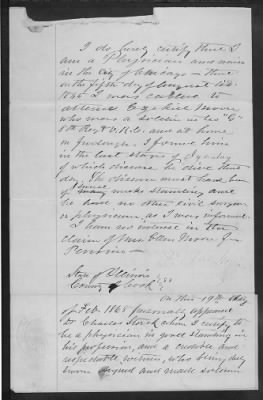 I do hereby certify that I
am a Physician and reside
in the City of Chicago - that
on the fifth day of August AD
1865 I was called to
attend Ezekiel Moore
who was a soldier in Co "C"
8th Regt V.R.C. and at home
on furlough. I found him
in the last stages of
of which disease he died that
day. The disease must have been
of several weeks standing and
he have no other civil surgeon
or physician, as I was informed.
I have no interest in the
claim of Mrs Ellen Moore for
Pension -
State of Illinois
County of Cook } SS
On this 19th day
of Feb. 1868 personally appeared
Dr Charles whom I certify to
be a physician in good standing in
his profession, and a credible and
respectable witness, who being duly
sworn signed and made solemn